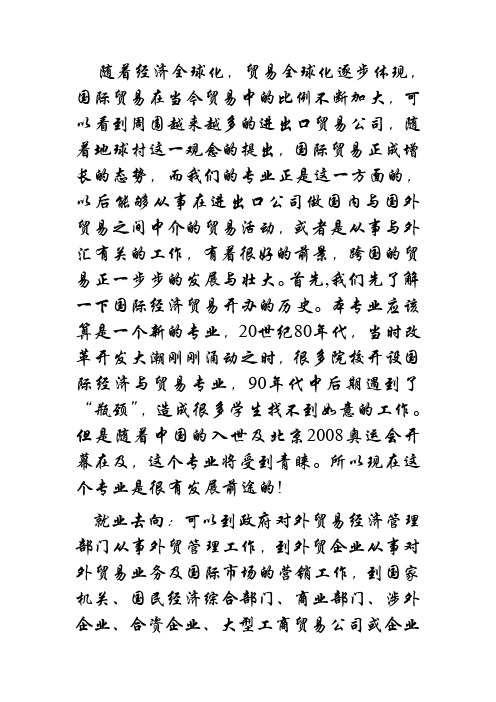 随着经济全球化，贸易全球化逐步体现，
国际贸易在当今贸易中的比例不断加大，可
以看到周围越来越多的进出口贸易公司，随
着地球村这一观念的提出，国际贸易正成增
长的态势，而我们的专业正是这一方面的，
以后能够从事在进出口公司做国内与国外
贸易之间中介的贸易活动，或者是从事与外
汇有关的工作，有着很好的前景，跨国的贸
易正一步步的发展与壮大。首先,我们先了解
一下国际经济贸易开办的历史。本专业应该
算是一个新的专业，20世纪80年代，当时改
革开发大潮刚刚涌动之时，很多院校开设国
际经济与贸易专业，90年代中后期遇到了
“瓶颈”，造成很多学生找不到如意的工作。
但是随着中国的入世及北京2008奥运会开
幕在及，这个专业将受到青睐。所以现在这
个专业是很有发展前途的!
就业去向：可以到政府对外贸易经济管理
部门从事外贸管理工作，到外贸企业从事对
外贸易业务及国际市场的营销工作，到国家
机关、国民经济综合部门、商业部门、涉外
企业、合资企业、大型工商贸易公司或企业